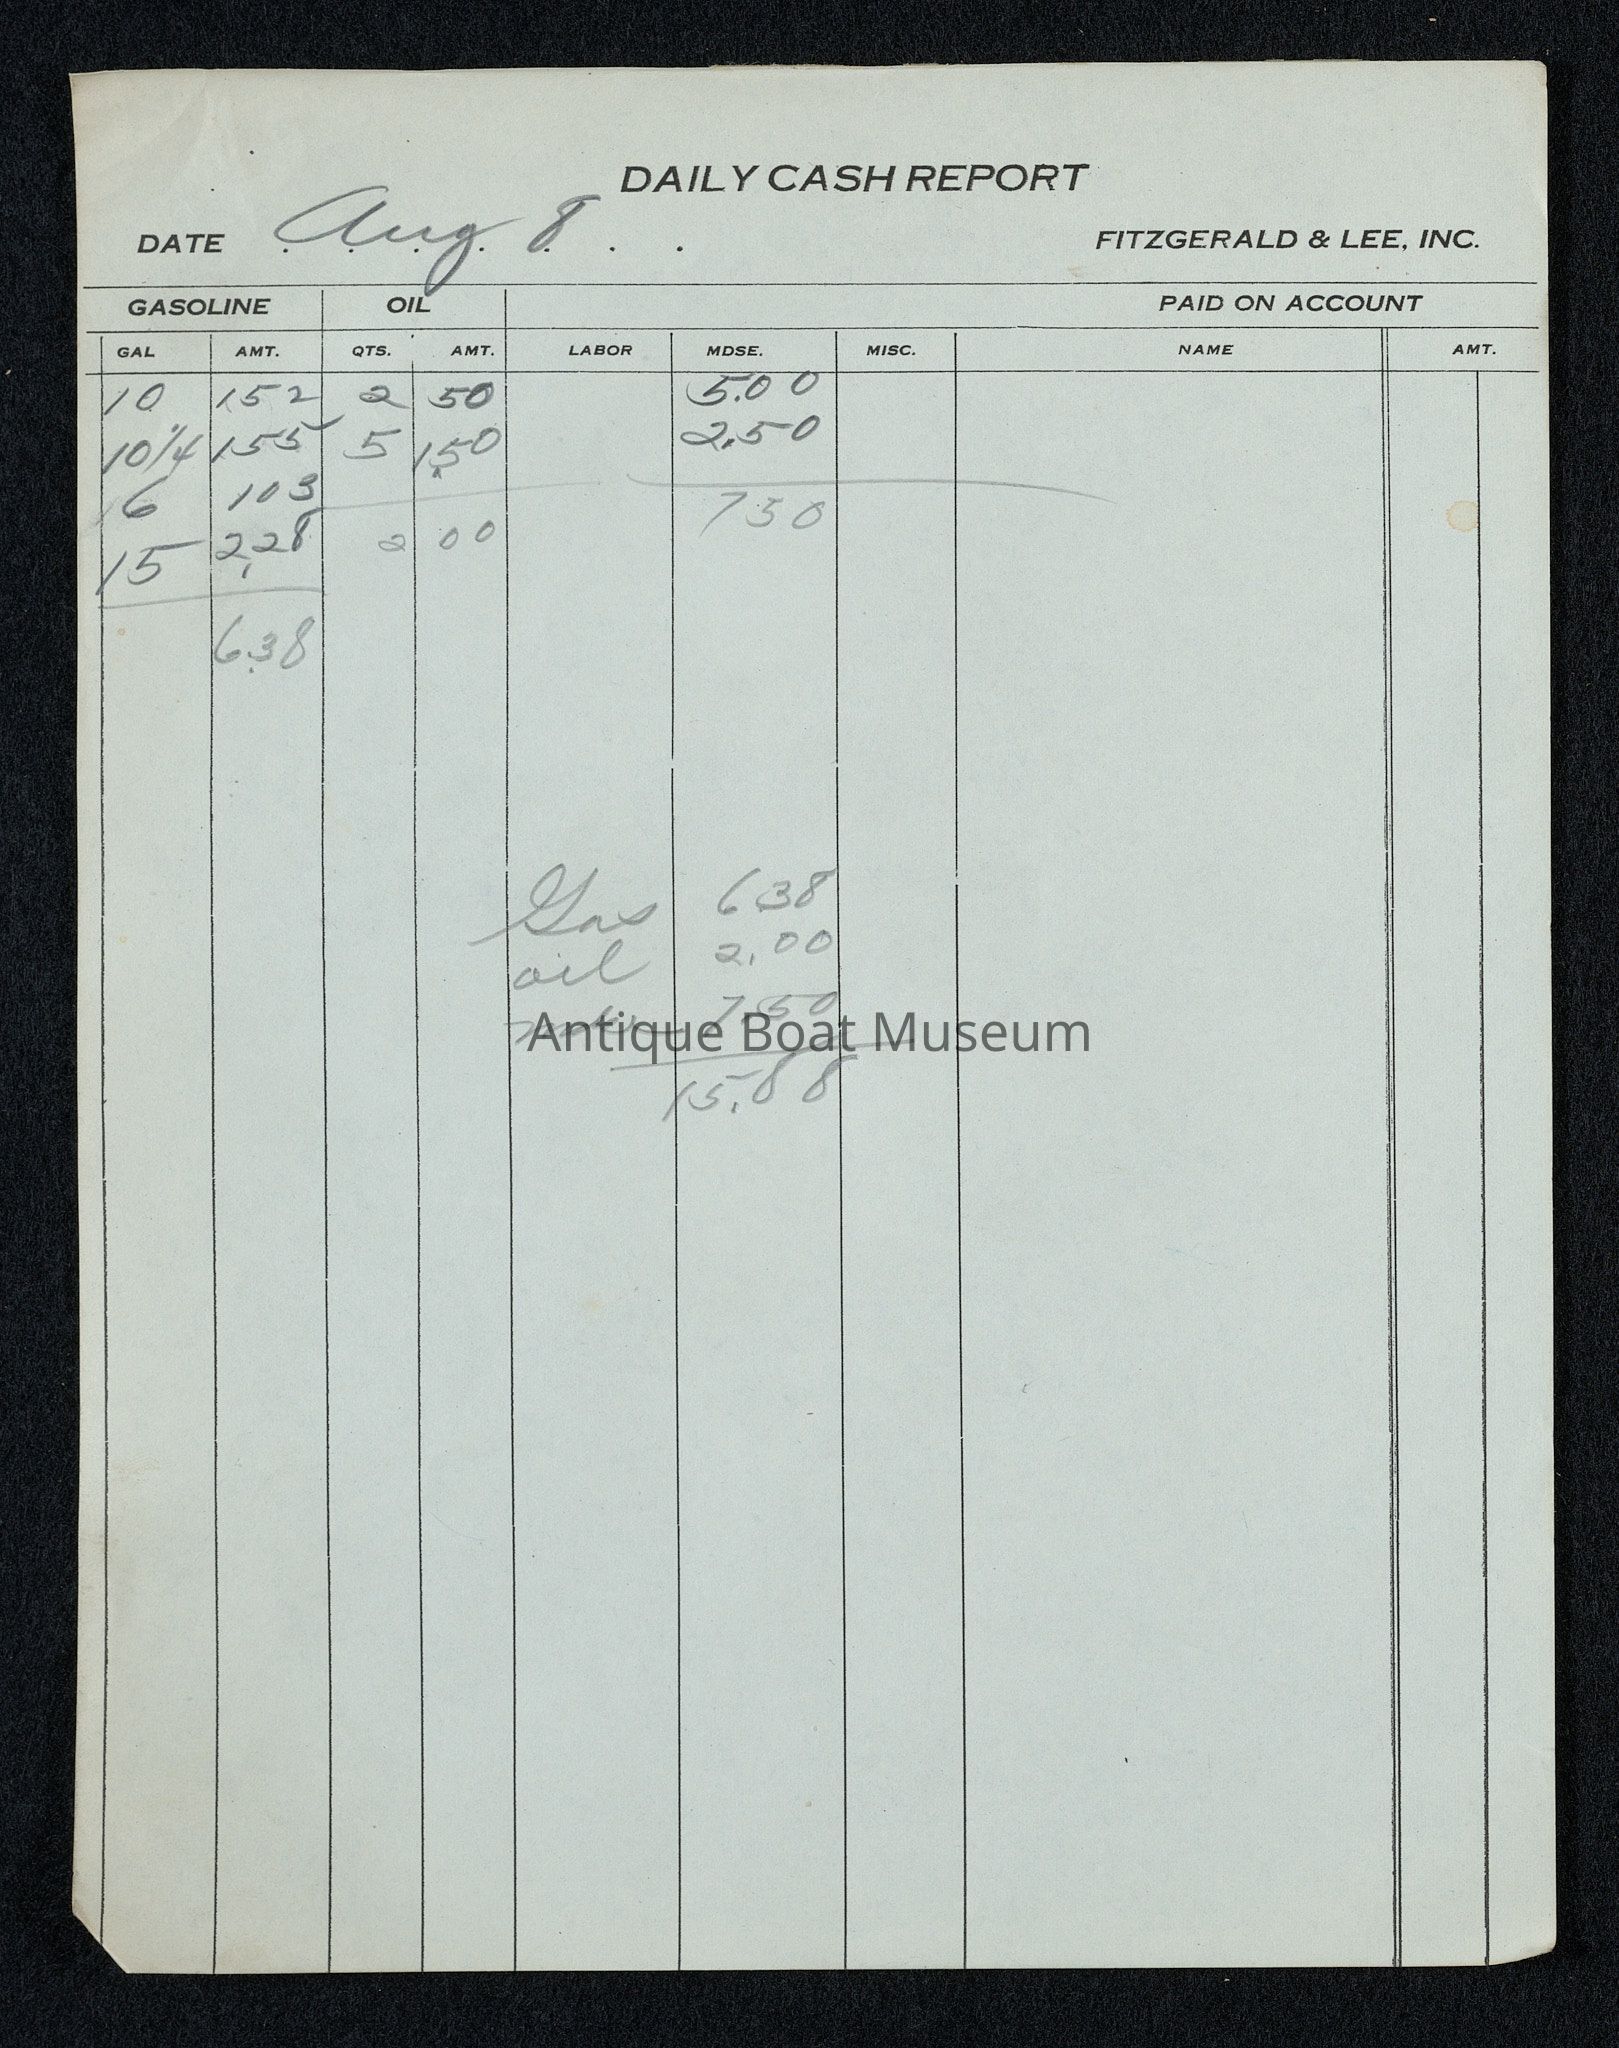 DAILY CASH REPORT
DATE Aug. 8
FITZGERALD & LEE, INC.
GASOLINE OIL PAID ON ACCOUNT
GAL AMT. QTS. AMT. LABOR MDSE. MISC. NAME AMT.
10 152 2 50 5.00
10 1/4 155 5 1.50 2.50
6 103
750
15 2,28 2 00
6.38
Gas 638
oil 2.00
7.50
Antique Boat Museum
15.88